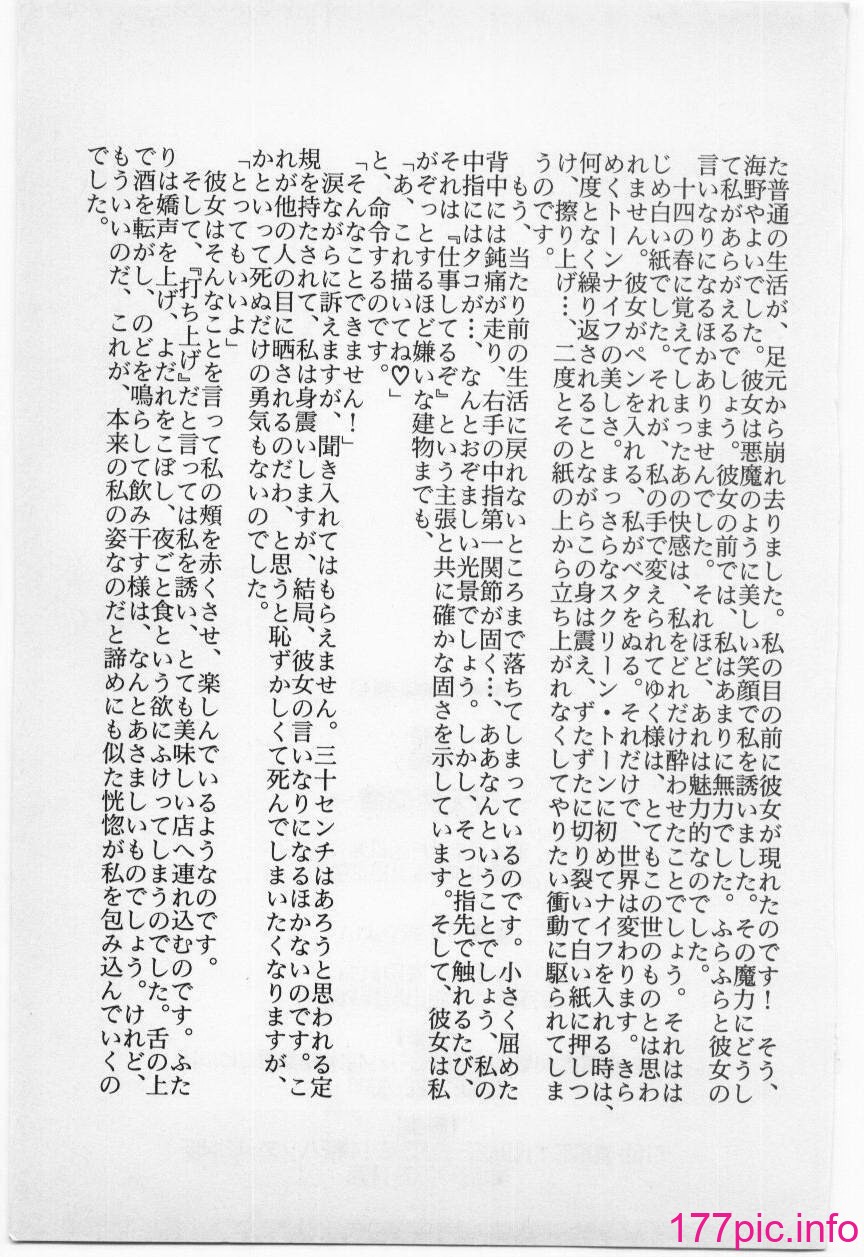 た普通の生活が、足元から崩れ去りました。私の目の前に彼女が現れたのです！　そう、
海野やよいでした。彼女は悪魔のように美しい笑顔で私を誘いました。その魔力にどうし
て私があらがえるでしょう。彼女の前では、私はあまりに無力でした。ふらふらと彼女の
言いなりになるほかありませんでした。それほど、あれは魅力的なのでした。
　十四の春に覚えてしまったあの快感は、私をどれだけ酔わせたことでしょう。それはは
じめ白い紙でした。それが、私の手で変えられてゆく様は、とてもこの世のものとは思わ
れません。彼女がペンを入れる、私がベタをぬる。それだけで、世界は変わります。きら
めくトーンナイフの美しさ。まっさらなスクリーン・トーンに初めてナイフを入れる時は、
何度となく繰り返されることながらこの身は震え、ずたずたに切り裂いて白い紙に押しつ
け、擦り上げ…、二度とその紙の上から立ち上がれなくしてやりたい衝動に駆られてしま
うのです。
　もう、当たり前の生活に戻れないところまで落ちてしまっているのです。小さく屈めた
背中には鈍痛が走り、右手の中指第一関節が固く…、ああなんということでしょう、私の
中指にはタコが…、なんとおぞましい光景でしょう。しかし、そっと指先で触れるたび、
それは『仕事してるぞ』という主張と共に確かな固さを示しています。そして、彼女は私
がぞっとするほど嫌いな建物までも、
「あ、これ描いてね♡」
と、命令するのです。
「そんなことできません！」
　涙ながらに訴えますが、聞き入れてはもらえません。三十センチはあろうと思われる定
規を持たされて、私は身震いしますが、結局、彼女の言いなりになるほかないのです。こ
れが他の人の目に晒されるのだわ、と思うと恥ずかしくて死んでしまいたくなりますが、
かといって死ぬだけの勇気もないのでした。
「とってもいいよ」
　彼女はそんなことを言って私の頬を赤くさせ、楽しんでいるようなのです。
　そして、『打ち上げ』だと言っては私を誘い、とても美味しい店へ連れ込むのです。ふた
りは嬌声を上げ、よだれをこぼし、夜ごと食という欲にふけってしまうのでした。舌の上
で酒を転がし、のどを鳴らして飲み干す様は、なんとあさましいものでしょう。けれど、
もういいのだ、これが、本来の私の姿なのだと諦めにも似た恍惚が私を包み込んでいくの
でした。
177pic.info